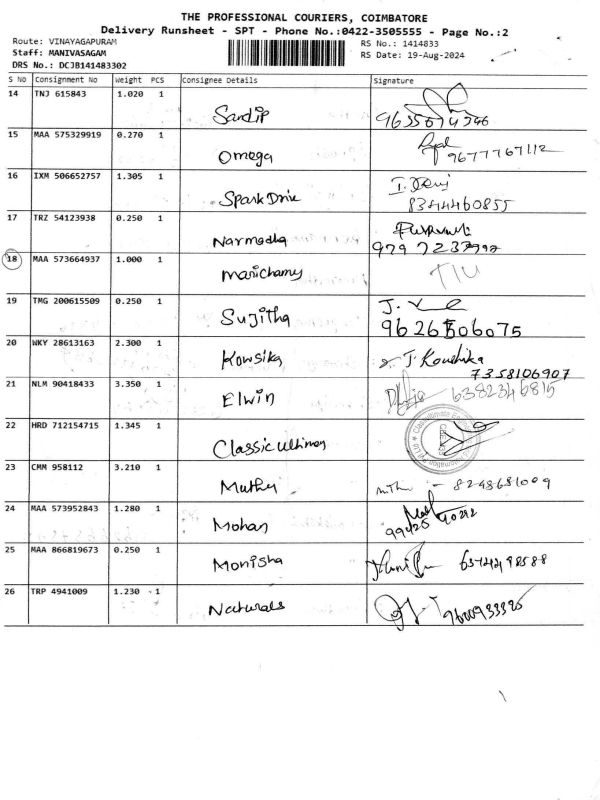 THE PROFESSIONAL COURIERS, COIMBATORE
Delivery Runsheet - SPT - Phone No.:0422-3505555 - Page No.:2
Route: VINAYAGAPURAM RS No.: 1414833
Staff: MANIVASAGAM RS Date: 19-Aug-2024
DRS No.: DCJB141483302
S NO Consignment No Weight PCS Consignee Details Signature
14 TNJ 615843 1.020 1 Sandip
15 MAA 575329919 0.270 1 Omega 9677767112
16 IXM 506652757 1.305 1 Spark Drive 8344460855
17 TRZ 54123938 0.250 1 Narmadha
18 MAA 573664937 1.000 1 Marichamy
19 TMG 200615509 0.250 1 Sujitha
20 WKY 28613163 2.300 1 Kowsika J. Koushika
7358106907
21 NLM 90418433 3.350 1 Elwin 6382346815
22 HRD 712154715 1.345 1 Classic ultimes
23 CMM 958112 3.210 1 Muthu 8248681009
24 MAA 573952843 1.280 1 Mohan
25 MAA 866819673 0.250 1 Monisha
26 TRP 4941009 1.230 1 Naturals